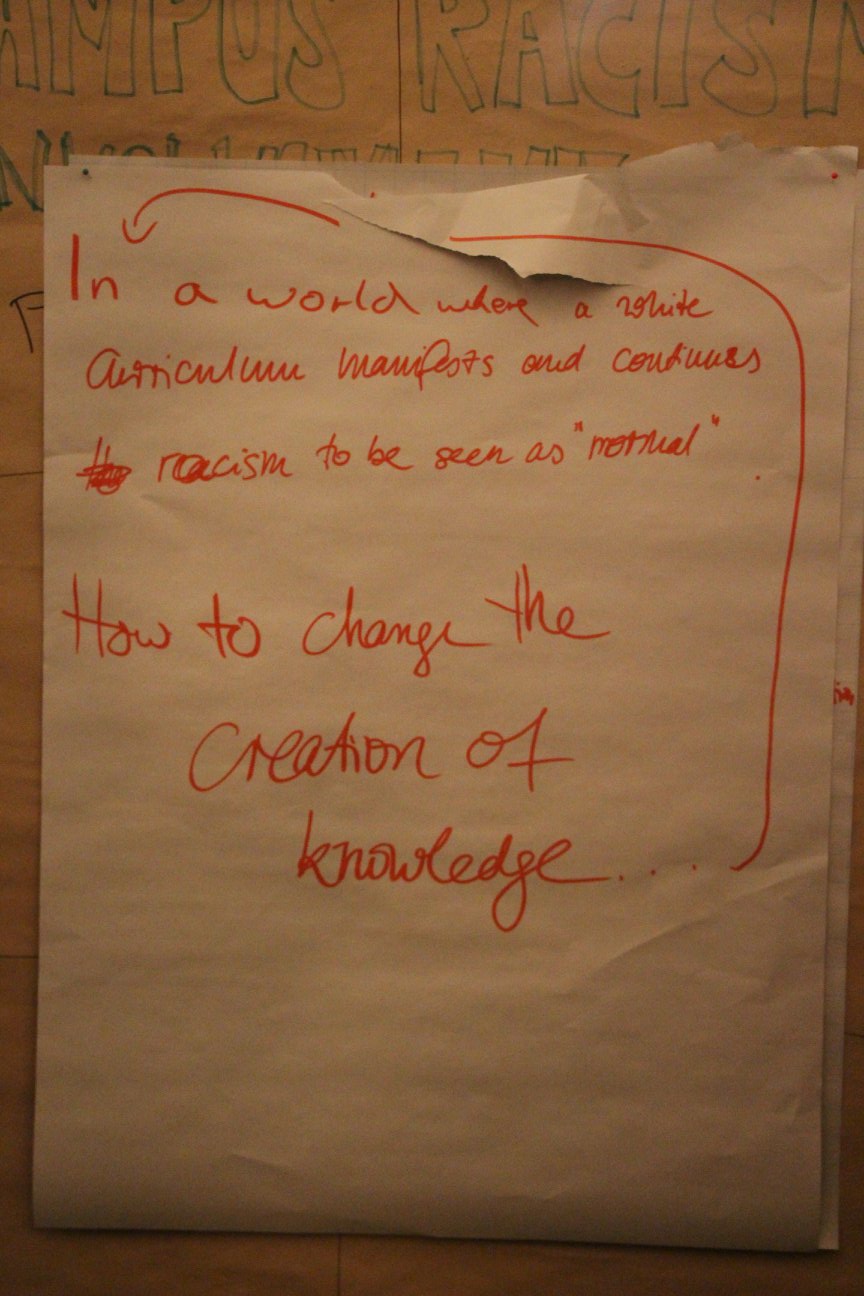 AMPUS RACISM
In a world where a white
curriculum manifests and continues
racism to be seen as "normal"
How to change the
creation of
knowledge....